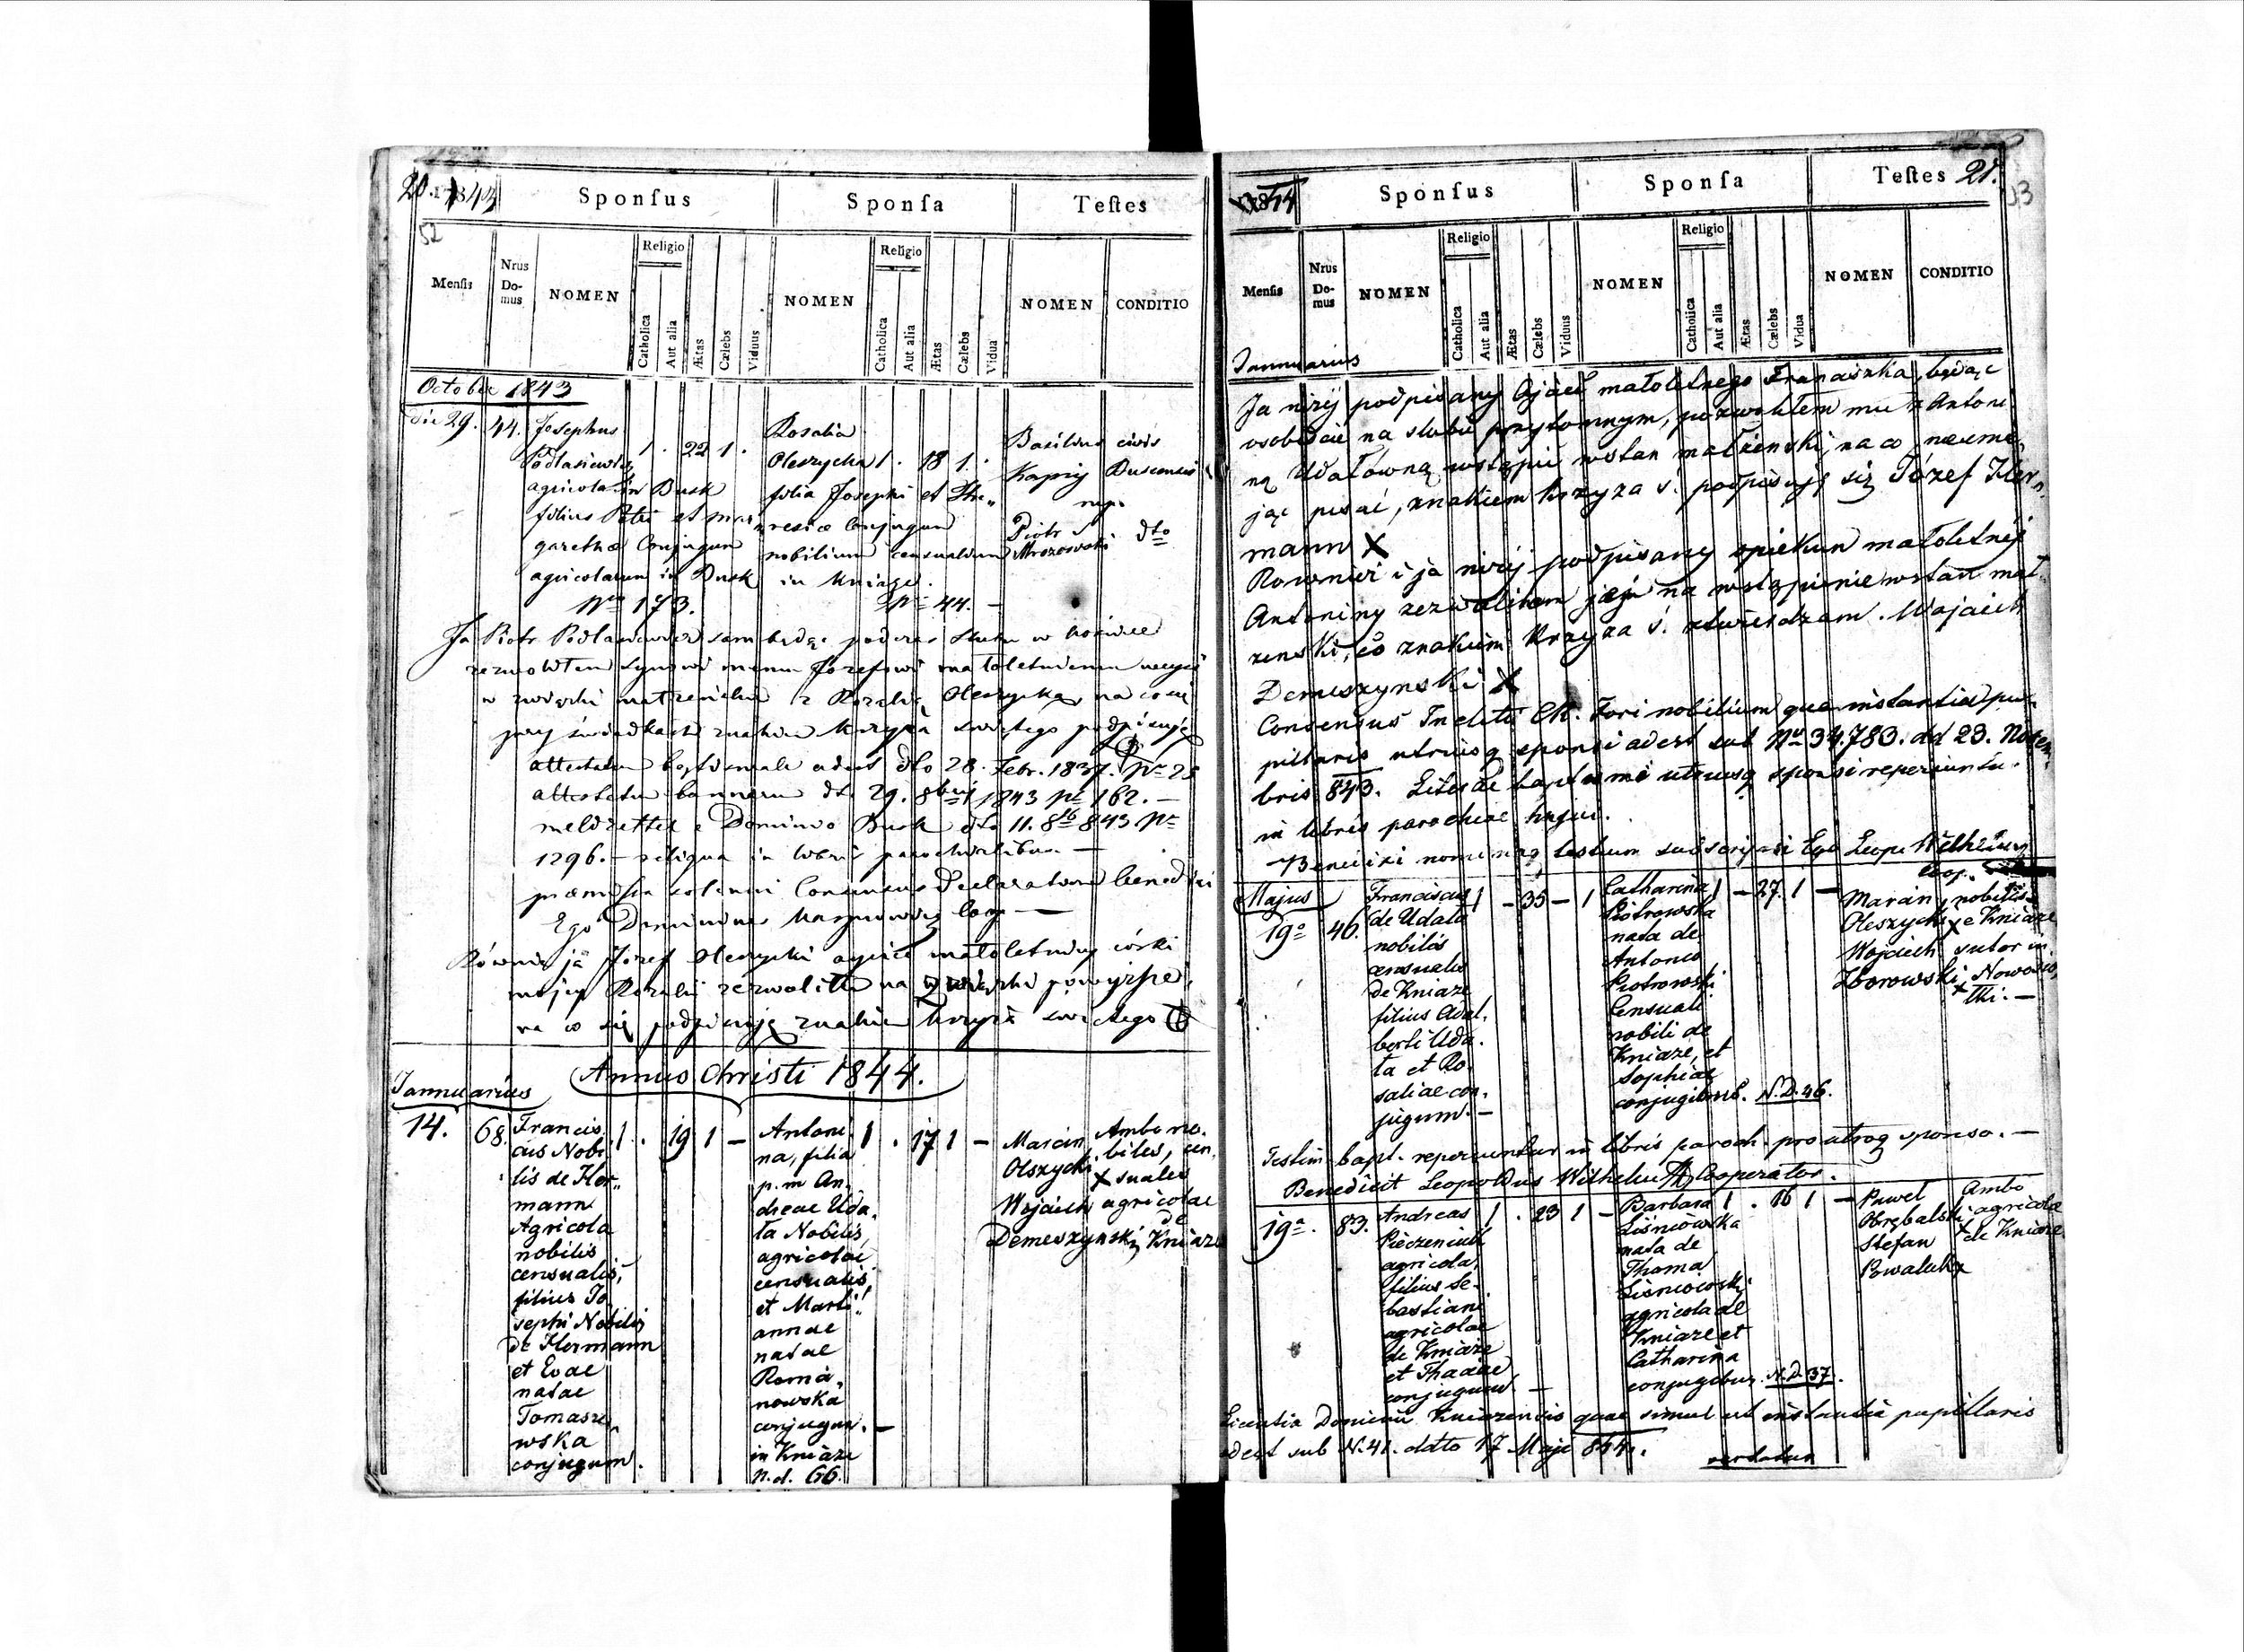 20. 1843
52
Sponſus
Sponſa
Teſtes
Menſis
Nrus Do-mus
NOMEN
Religio
Catholica
Aut alia
Ætas
Cælebs
Viduus
NOMEN
Religio
Catholica
Aut alia
Ætas
Cælebs
Vidua
NOMEN
CONDITIO
October 1843
die 29. 44. Josephus
Podlasiewicz 1 . 22 1 .
agricola in Busk
filius Petri et Mar
garethæ Conjugum
agricolarum in Busk
Nro 173.
Rosalia
Oleszycka 1 . 18 1 .
filia Josephi et The„
resiæ Conjugum
nobilium censualium
in Kniaże.
Nro 44. –
Basilius civis
Kapij Buscensis
Piotr
Mrozowski dto
Ja Piotr Podlasiewicz sam będąc podczas ślubu w kościele
zezwoliłem synowi memu Józefowi małoletniemu
w związki małżeńskie z Rozalią Oleszycką, na co się
przy świadkach znakiem krzyża świętego podpisuję
dto 28. Febr. 1837. Nro 25
29. 8bris 1843 Nro 162. –
meldzettel e Dominio Busk dto 11. 8b 843 Nro
1296. – reliqua in libris parochialibus –
præmissa solenni Consensus Declaratione benedixi
Ego Dominicus coop –
Równie ja Józef Oleszycki ojciec małoletniej córki
mojej Rozalii zezwoliłem na związki powyższe,
na co się podpisuję znakiem krzyża świętego
Annus Christi 1844.
Jannuarius
14. 68. Francis. 1 . 19 1 –
cus Nobi
lis de Her„
mann
Agricola
nobilis
censualis,
filius Jo.
sephi Nobilis
de Hermann
et Evae
natae
Tomasze„
wska
conjugum.
Antoni 1 . 17 1 –
na, filia
p.m An.
dreae Uda.
ta Nobilis,
agricolae
censualis,
et Mari
annae
natae
Roma„
nowska
conjugum. –
in Kniaże
N.d. 66.
Marcin Ambo no.
Olszycki biles, cen.
x suales
Wojciech agricolae
de
Demeszynski Kniaże
1844
Sponſus
Sponſa
Teſtes 21.
53
Menſis
Nrus Do-mus
NOMEN
Religio
Catholica
Aut alia
Ætas
Cælebs
Viduus
NOMEN
Religio
Catholica
Aut alia
Ætas
Cælebs
Vidua
NOMEN
CONDITIO
Jannuarius
Ja niżej podpisany Ojciec małoletnego Franaszka, będąc
osobiście na ślubie przytomnym, pozwoliłem mu z Antoni
ną Udatówną wstąpić wstan małżenski, na co nieumie„
jąc pisać, znakiem krzyża ś. podpisuję się Józef Her„
mann X
Rownież i ja niżej podpisany opiekun małoletniej
Antoniny zezwoliłem jej na wstąpienie wstan mał„
żenski, co znakiem krzyża ś. ztwierdzam. Wojciech
Demeszynski X
Consensus Incliti CR. Fori nobilium qua instantia pu„
pillaris utriusq sponsi adest sub Nro 34.783. dd 23. Novem„
bris 843. Literae baptismi utriusq sponsi reperiuntur
in libris parochiae hujus.
Benedixi nominaq testium subscripsi Ego Leop. Wilhelm
Coop.
Majus
19o 46. Franciscus 1 – 35 – 1
de Udata
nobilis
censualis
de Kniaże
filius Adal.
berti Uda.
ta et Ro.
saliae con„
jugum. –
Catharina 1 – 27. 1 –
Piotrowska
nata de
Antonio
Piotrowski
Censuali
nobili de
Kniaże, et
Sophiae
conjugibus. N.D. 46.
Marcin, nobilis
Oleszycki x e Kniaże
Wojciech sutor in
Zborowski x Nowosiō
łki. –
Testim. bapt. reperiuntur in libris paroch. pro utroq sponso. –
Benedixit Leopoldus Wilhelm Cooperator.
19a. 83. Andreas 1 . 23 1 –
Pieczeniuk
agricola,
filius Se.
bastiani
agricolae
de Kniaże
et Theclae
conjugum –
Barbara 1 . 16 1 –
Liśniowska
nata de
Thoma
Liśniowski
agricola de
Kniaże et
Catharina
conjugibus. N.D. 37.
Paweł Ambo
Obrębalski agricolae
Stefan x de Kniaże
Powaluk x
Licentia Dominii Kniazensis quae simul ut instantia pupillaris
adest sub N. 41. ddto 17 Maji 844.
vertatur